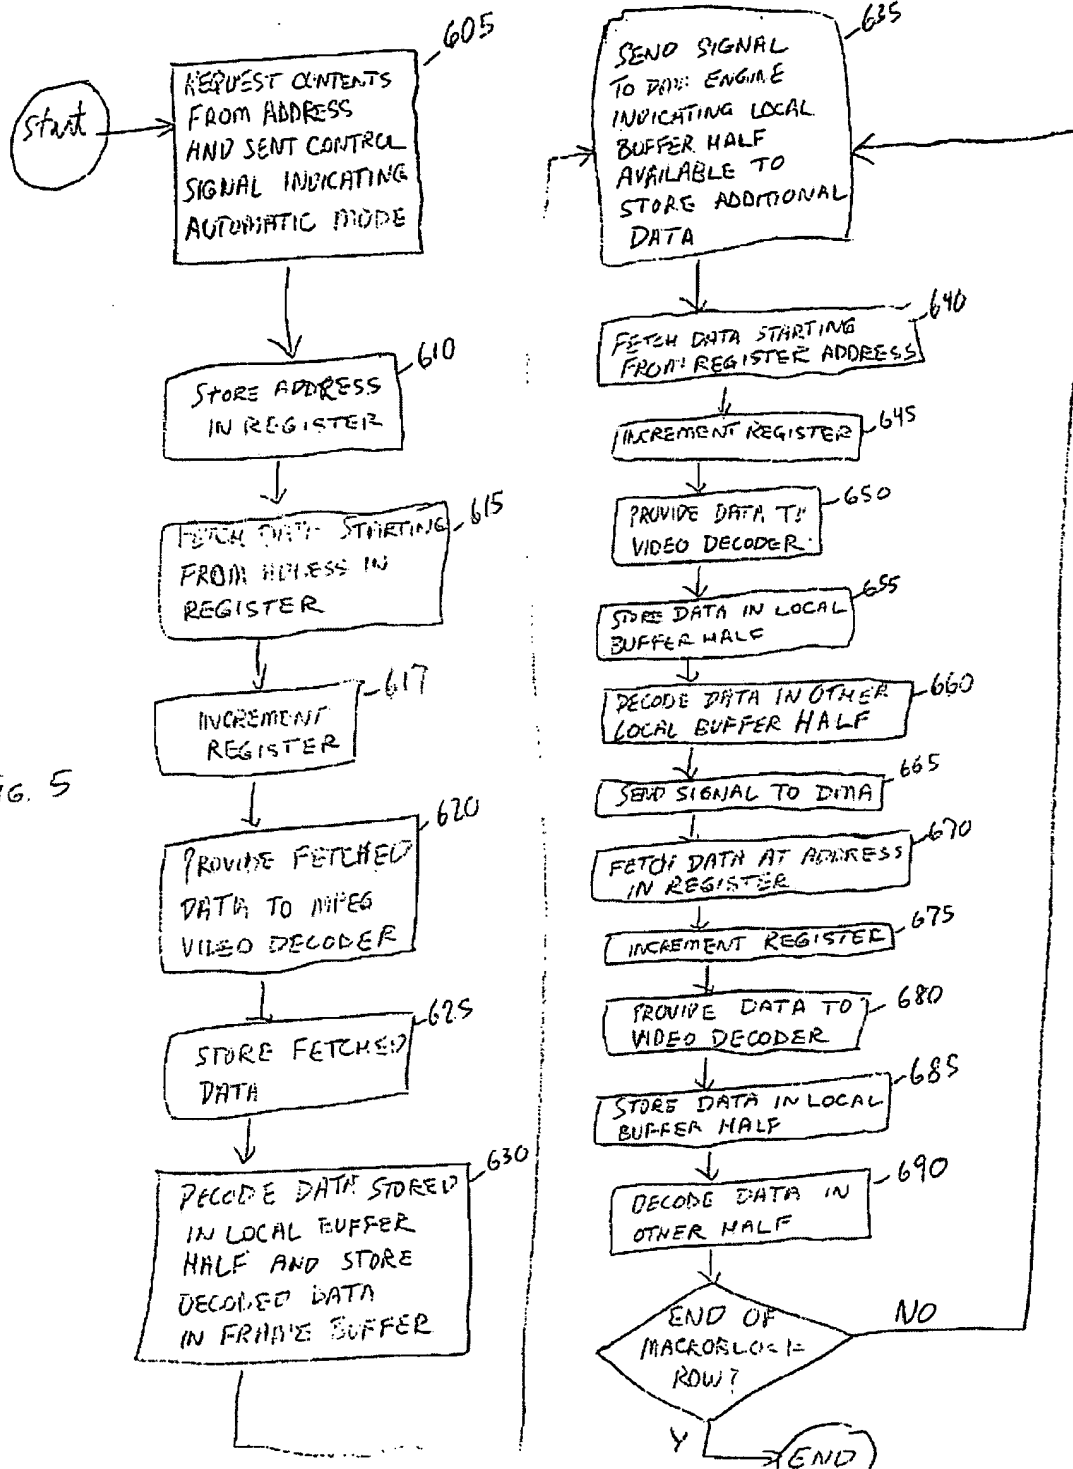 605
REQUEST CONTENTS
FROM ADDRESS
AND SENT CONTROL
SIGNAL INDICATING
AUTOMATIC MODE
Start
610
STORE ADDRESS
IN REGISTER
615
FETCH DATA STARTING
FROM IN
REGISTER
617
INCREMENT
REGISTER
FIG. 5
620
PROVIDE FETCHED
DATA TO MPEG
VIDEO DECODER
625
STORE FETCHED
DATA
630
DECODE DATA STORED
IN LOCAL BUFFER
HALF AND STORE
DECODED DATA
IN FRAME BUFFER
635
SEND SIGNAL
TO DMA ENGINE
INDICATING LOCAL
BUFFER HALF
AVAILABLE TO
STORE ADDITIONAL
DATA
640
FETCH DATA STARTING
FROM REGISTER ADDRESS
645
INCREMENT REGISTER
650
PROVIDE DATA TO
VIDEO DECODER
655
STORE DATA IN LOCAL
BUFFER HALF
660
DECODE DATA IN OTHER
LOCAL BUFFER HALF
665
SEND SIGNAL TO DMA
670
FETCH DATA AT ADDRESS
IN REGISTER
675
INCREMENT REGISTER
680
PROVIDE DATA TO
VIDEO DECODER
685
STORE DATA IN LOCAL
BUFFER HALF
690
DECODE DATA IN
OTHER HALF
END OF
MACROBLOCK
ROW?
NO
Y
END